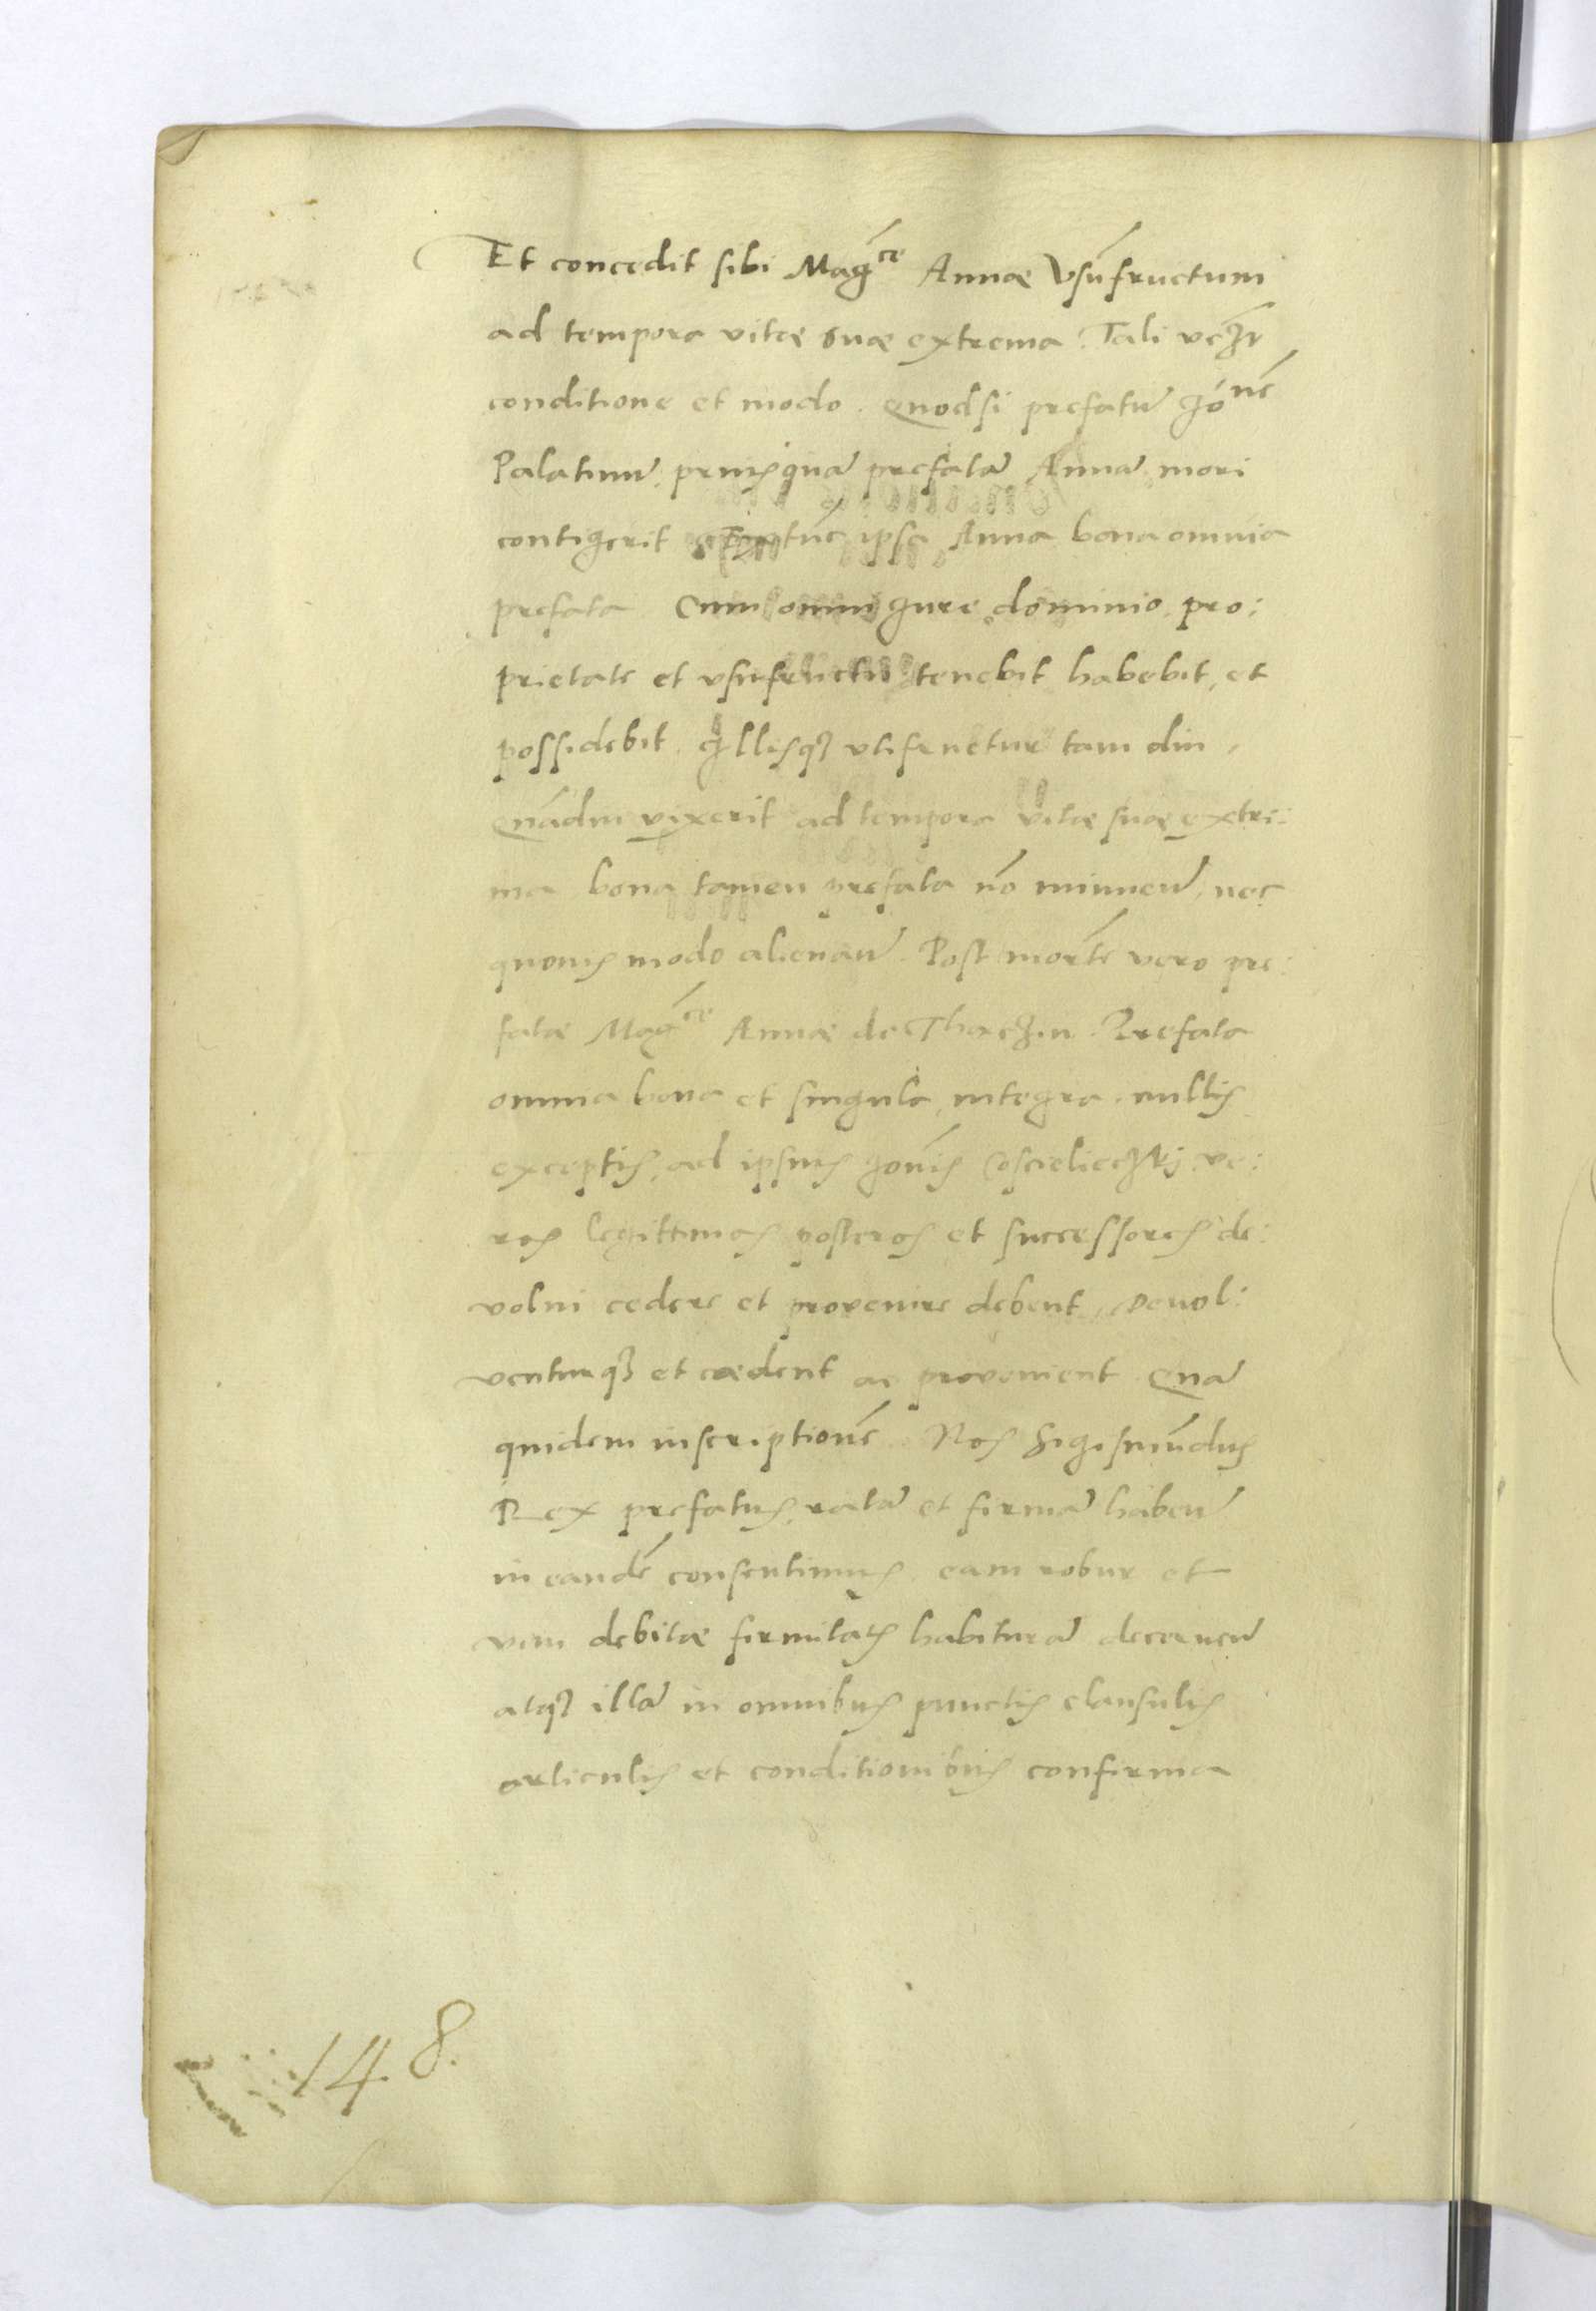 Et concedit sibi Mag̃ce Annæ Vsũfructum
ad tempora vitæ suæ extrema. Tali
conditione et modo. Quodsi prefatũ Joñe
Palatinũ, priusquã prefatã Annã mori
contigerit Extũc ipsa Anna bona omnia
prefata Cum omni Jure dominio, pro:
prietate et vsufructu tenebit habebit, et
possidebit. Jllisq3 vtifruetur tam diu,
Quãdiu vixerit ad tempora vitæ suæ extre:
ma bona tamen prefata nõ minuend̃, nec
quouis modo alienand̃. Post mortẽ vero pre:
fatæ Mag̃ce Annæ de Thaczin. Prefata
omnia bona et singula, integra. nullis
exceptis, ad ipsius Joñis Coscielieczkj, ve:
ros legittimos posteros et successores de:
volui cedere et prouenire debent, Deuol:
venturq3 et cædent ac prouenient. Quã
quidem inscriptionẽ. Nos Sigismũdus
Rex prefatus, ratã et firmã habeñ
in eandẽ consentimus, eam robur et
vim debitæ firmitatis habiturã decerneñ
atq3 illã in omnibus punctis clausulis
articulis et conditionibus confirma
148.